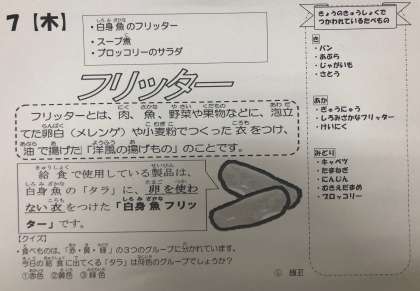 7【木】
・白身魚のフリッター
・スープ煮
・ブロッコリーのサラダ
フリッター
フリッターとは、肉、魚、野菜や果物などに、泡立
てた卵白（メレンゲ）や小麦粉でつくった衣をつけ、
油で揚げた「洋風の揚げもの」のことです。
給食で使用している製品は、
白身魚の「タラ」に、卵を使わ
ない衣をつけた「白身魚フリッ
ター」です。
【クイズ】
・食べものは、「赤・黄・緑」の３つのグループに分かれています。
今日の給食に出てくる「タラ」は何色のグループでしょうか？
①赤色 ②黄色 ③緑色
きょうのきゅうしょくで
つかわれているたべもの
き
・パン
・あぶら
・じゃがいも
・さとう
あか
・ぎゅうにゅう
・しろみざかなフリッター
・けいにく
みどり
・キャベツ
・たまねぎ
・にんじん
・むきえだまめ
・ブロッコリー